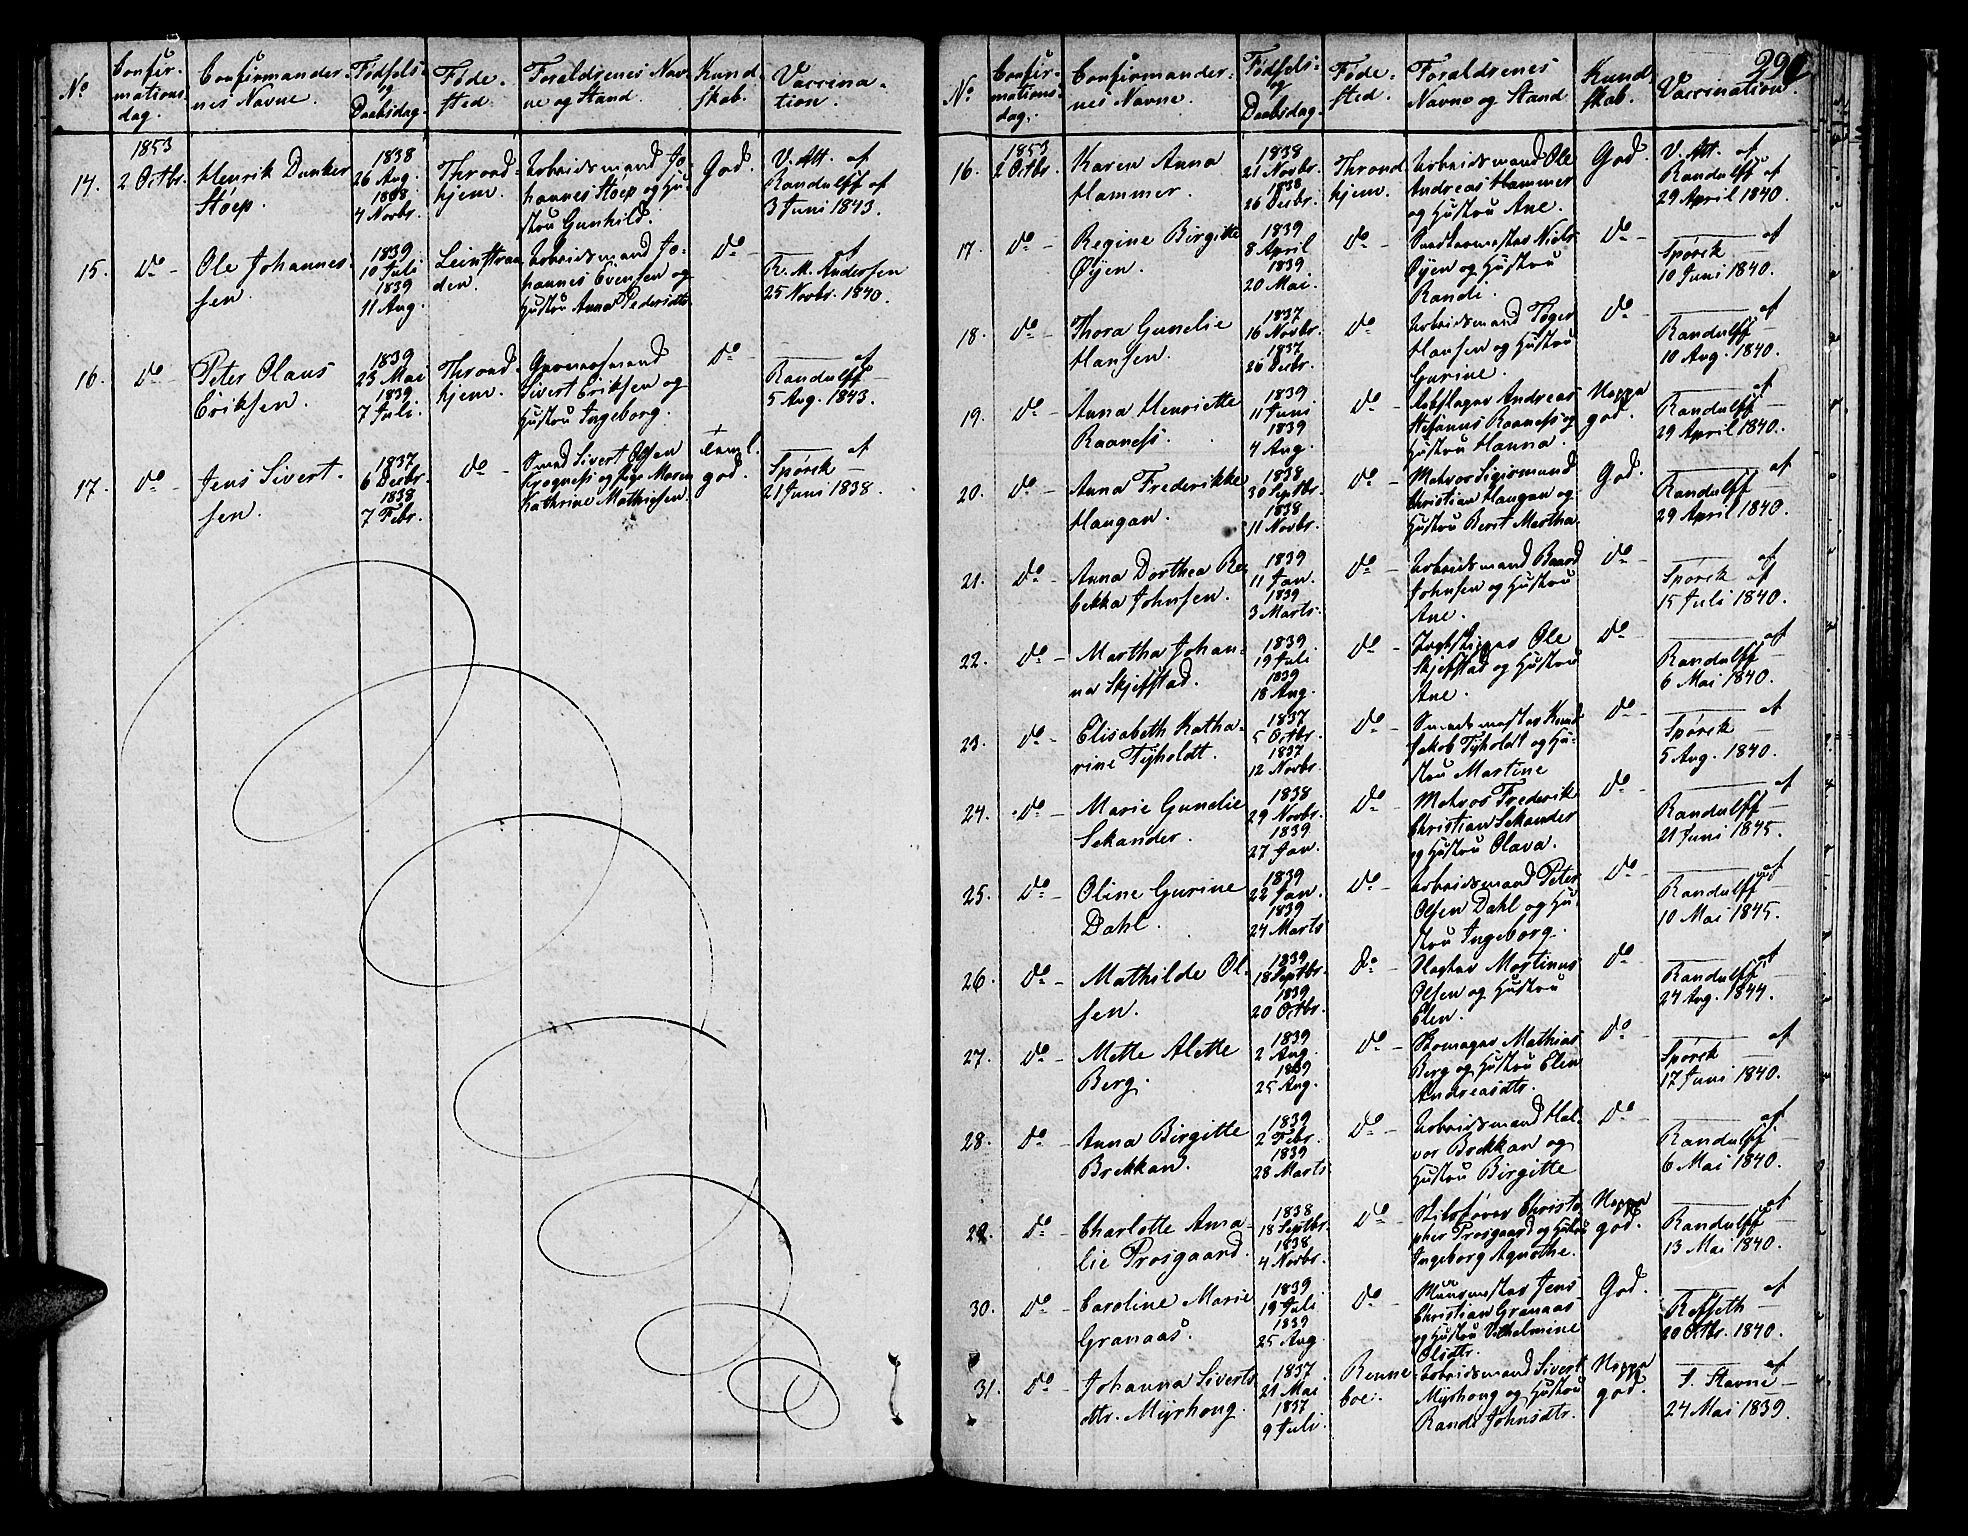 No
Confir-
mations
dag.
Confirmander-
nes Navne.
Fødsels-
og
Daabsdag.
Føde-
sted.
Forældrenes Nav-
ne og Stand.
Kund-
skab.
Vaccina-
tion.
1853
14.
2 Octbr.
Henrik Danker
Støep.
1838
26 Aug.
1838
4 Novbr.
Thrond-
hjem.
Arbeidsmand Jo-
hannes Støep og Hu-
stru Gunhild.
God.
V. Att. af
Randulff af
3 Juni 1843.
15.
do -
Ole Johannes-
sen.
1839
10 Juli
1839
11 Aug.
Leinstran-
den.
Arbeidsmand Jo-
hannes Evensen og
Hustru Anna Pedersdtr.
do -
— af
R. M. Andersen
25 Novbr. 1840.
16.
do -
Peter Olaus
Eriksen.
1839
23 Mai
1839
7 Juli.
Thrond-
hjem.
Sivert Eriksen og
Hustru Ingeborg.
do -
— af
Randulff —
5 Aug. 1843.
17.
do -
Jens Sivert-
sen.
1837
6 Decbr.
1838
7 Febr.
do -
Smed Sivert Olsen
Krogness og Pige Maren
Kathrine Mathiesen.
Teml.
god.
— af
Spørck —
21 Juni 1838.
No
Confir-
mations-
dag.
Confirmander-
nes Navne.
Fødsels-
og
Daabsdag.
Føde-
sted.
Forældrenes
Navne og Stand
Kund-
skab.
Vaccination.
1853
16.
2 Octbr.
Karen Anna
Hammer.
1838
21 Novbr.
1838
26 Decbr.
Thrond-
hjem.
Arbeidsmand Ole
Andreas Hammer
og Hustru Ane.
God.
V. Att. af
Randulff af
29 April 1840.
17.
do -
Regine Birgitte
Øyen.
1839
8 April
1839
20 Mai.
do -
Snedkermester Niels
Øyen og Hustru
Randi.
do -
— af
Spørck —
10 Juni 1840.
18.
do -
Thora Gunelie
Hansen.
1837
16 Novbr.
1837
26 Decbr.
do -
Arbeidsmand Toger
Hansen og Hustru
Gurine.
do -
— af
Randulff —
10 Aug. 1840.
19.
do -
Anna Henriette
Raaness.
1839
11 Juni
1839
4 Aug.
do -
Andreas
Stefanus Raaness og
Hustru Hanna.
Meget
god.
— af
Randulff —
29 April 1840.
20.
do -
Anna Frederikke
Haugan.
1838
30 Septbr.
1838
11 Novbr.
do -
Christian Haugan og
Hustru Berit Martha.
God.
— af
Randulff —
29 April 1840.
21.
do -
Anna Dorthea Re-
bekka Johnsen.
1839
11 Jan.
1839
3 Marts.
do -
Arbeidsmand Baard
Johnsen og Hustru
Ane.
do -
— af
Spørck af
15 Juli 1840.
22.
do -
Martha Johan-
na Skjefstad.
1839
19 Juli
1839
18 Aug.
do -
Jagtskipper Ole
Skjefstad og Hustru
Ane.
do -
— af
Randulff —
6 Mai 1840.
23.
do -
Elisabeth Katha-
rine Tyholdt.
1837
5 Octbr.
1837
12 Novbr.
do -
Smedmester Knud
Jakob Tyholdt og Hu-
stru Martine
do -
— af
Spørck —
5 Aug. 1840.
24.
do -
Marie Gunelie
Sekander.
1838
29 Novbr.
1839
27 Jan.
do -
Matros Frederik
Christian Sekander
og Hustru Olava.
do -
— af
Randulff —
21 Juni 1845.
25.
do -
Oline Gurine
Dahl.
1839
22 Jan.
1839
24 Marts
do -
Arbeidsmand Peter
Olsen Dahl og Hu-
stru Ingeborg.
do -
— af
Randulff —
10 Mai 1845.
26.
do -
Mathilde Ol-
sen.
1839
18 Septbr.
1839
20 Octbr.
do -
Slagter Martinus
Olsen og Hustru
Elen.
do -
— af
Randulff —
24 Aug. 1844.
27.
do -
Mette Alette
Berg.
1839
2 Aug.
1839
25 Aug.
do -
Skomager Mathias
Berg og Hustru Elen
Andreasdtr.
do -
— af
Spørck —
17 Juni 1840.
28.
do -
Anna Birgitte
Brekkan.
1839
2 Febr.
1839
28 Marts
do -
Arbeidsmand Hal-
vor Brekkan og
Hustru Birgitte
do -
— af
Randulff —
6 Mai 1840.
29.
do -
Charlotte Ama-
lie Prosgaard.
1838
18 Septbr.
1838
4 Novbr.
do -
Christo-
pher Prosgaard og Hustru
Ingeborg Agnethe.
Meget
god.
— af
Randulff —
13 Mai 1840.
30.
do -
Caroline Marie
Granaas.
1839
19 Juli
1839
25 Aug
do -
Muurmester Jens
Christian Granaas
og Hustru Vilhelmine
Olidtr.
God.
— af
Rosseth —
20 Octbr. 1840.
31.
do -
Johanna Siverts-
dtr. Myrhoug.
1837
21 Mai
1837
9 Juli.
Renne-
boe.
Arbeidsmand Sivert
Myrhoug og Hustru
Randi Johnsdtr.
Meget
god.
— af
J. Stavne —
24 Mai 1839.